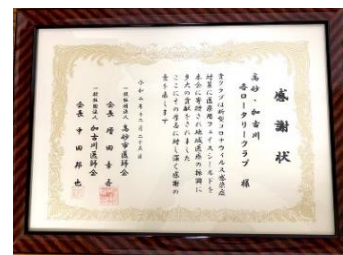 感謝状
高砂・加古川
各ロータリークラブ 様
貴クラブは新型コロナウイルス感染症
対策に医療用フェイスシールドを
本会に寄贈され地域医療の振興に
多大の貢献をされました
ここにその厚志に対し深く感謝の
意を表します
令和二年
一般社団法人 高砂市医師会
会長 増田 章吾
一般社団法人 加古川医師会
会長 中田 邦也